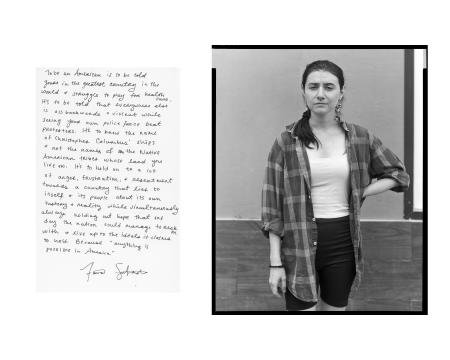 To be an American is to be told
you're in the greatest country in the
world & struggle to pay for health
care.
It's to be told that everywhere else
is backwards & violent while
seeing your own police force beat
protestors. It's to know the name
of Christopher Columbus' ships
& not the names of the Native
American tribes whose land you
live on. It's to hold on to a lot
of anger, frustration, & resentment
towards a country that lies to
itself & its people about its own
history & reality while simultaneously
always holding out hope that one
day the nation could manage to
with, & live up to the ideals it claims
to hold. Because "anything is
possible in America"